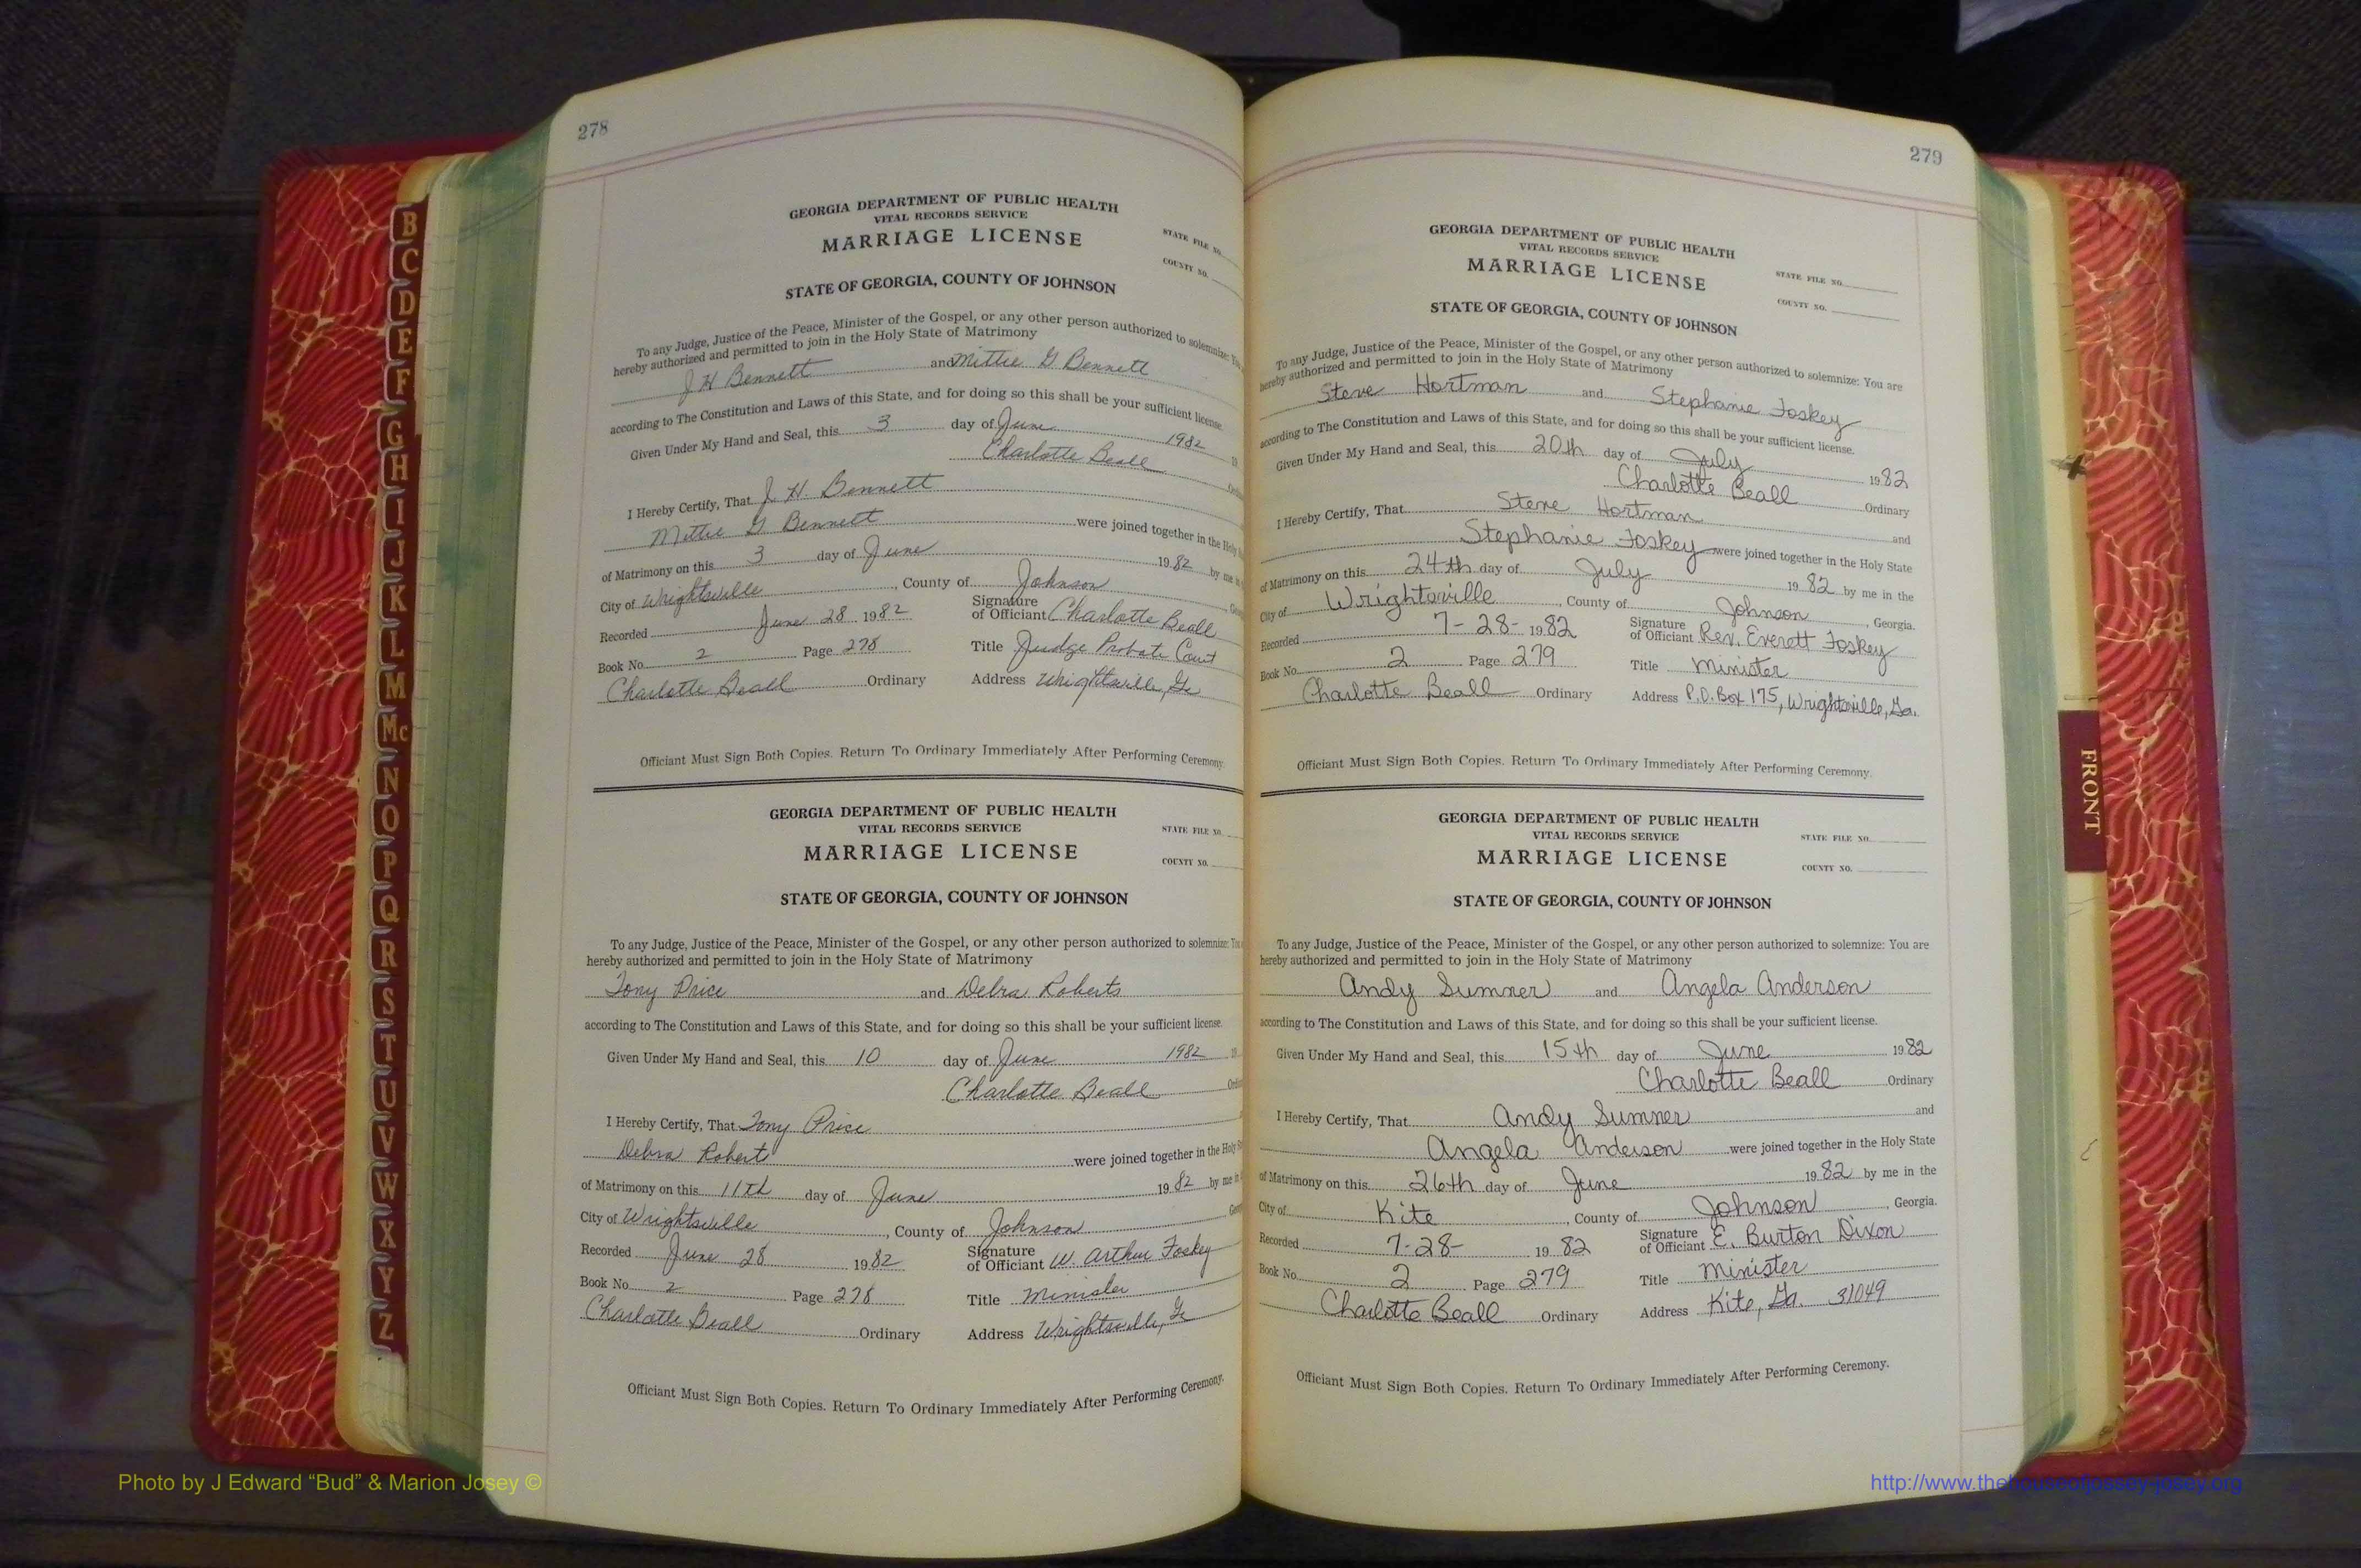 278
GEORGIA DEPARTMENT OF PUBLIC HEALTH
VITAL RECORDS SERVICE
MARRIAGE LICENSE
STATE FILE NO.
COUNTY NO.
STATE OF GEORGIA, COUNTY OF JOHNSON
To any Judge, Justice of the Peace, Minister of the Gospel, or any other person authorized to solemnize: You
hereby authorized and permitted to join in the Holy State of Matrimony
J H Bennett and Mittie G Bennett
according to The Constitution and Laws of this State, and for doing so this shall be your sufficient license.
Given Under My Hand and Seal, this 3 day of June 1982 19
Charlotte Beall
I Hereby Certify, That J. H. Bennett
Mittie G Bennett were joined together in the Holy
of Matrimony on this 3 day of June 1982 by me in
City of Wrightsville, County of Johnson
Recorded June 28 1982 Signature of Officiant Charlotte Beall
Book No. 2 Page 278 Title Judge Probate Court
Charlotte Beall Ordinary Address Wrightsville, Ga
Officiant Must Sign Both Copies. Return To Ordinary Immediately After Performing Ceremony.
GEORGIA DEPARTMENT OF PUBLIC HEALTH
VITAL RECORDS SERVICE
MARRIAGE LICENSE
STATE FILE NO.
COUNTY NO.
STATE OF GEORGIA, COUNTY OF JOHNSON
To any Judge, Justice of the Peace, Minister of the Gospel, or any other person authorized to solemnize: You
hereby authorized and permitted to join in the Holy State of Matrimony
Tony Price and Debra Roberts
according to The Constitution and Laws of this State, and for doing so this shall be your sufficient license.
Given Under My Hand and Seal, this 10 day of June 1982 19
Charlotte Beall
I Hereby Certify, That Tony Price
Debra Robert were joined together in the Holy
of Matrimony on this 11th day of June 1982 by me in
City of Wrightsville, County of Johnson
Recorded June 28 1982 Signature of Officiant W. Arthur Foskey
Book No. 2 Page 278 Title Minister
Charlotte Beall Ordinary Address Wrightsville, Ga
Officiant Must Sign Both Copies. Return To Ordinary Immediately After Performing Ceremony.
279
GEORGIA DEPARTMENT OF PUBLIC HEALTH
VITAL RECORDS SERVICE
MARRIAGE LICENSE
STATE FILE NO.
COUNTY NO.
STATE OF GEORGIA, COUNTY OF JOHNSON
To any Judge, Justice of the Peace, Minister of the Gospel, or any other person authorized to solemnize: You are
hereby authorized and permitted to join in the Holy State of Matrimony
Steve Hortman and Stephanie Foskey
according to The Constitution and Laws of this State, and for doing so this shall be your sufficient license.
Given Under My Hand and Seal, this 20th day of July 1982
Charlotte Beall Ordinary
I Hereby Certify, That Steve Hortman and
Stephanie Foskey were joined together in the Holy State
of Matrimony on this 24th day of July 1982 by me in the
City of Wrightsville, County of Johnson, Georgia.
Recorded 7-28- 1982 Signature of Officiant Rev. Everett Foskey
Book No. 2 Page 279 Title Minister
Charlotte Beall Ordinary Address P.O. Box 175, Wrightsville, Ga.
Officiant Must Sign Both Copies. Return To Ordinary Immediately After Performing Ceremony.
GEORGIA DEPARTMENT OF PUBLIC HEALTH
VITAL RECORDS SERVICE
MARRIAGE LICENSE
STATE FILE NO.
COUNTY NO.
STATE OF GEORGIA, COUNTY OF JOHNSON
To any Judge, Justice of the Peace, Minister of the Gospel, or any other person authorized to solemnize: You are
hereby authorized and permitted to join in the Holy State of Matrimony
Andy Sumner and Angela Anderson
according to The Constitution and Laws of this State, and for doing so this shall be your sufficient license.
Given Under My Hand and Seal, this 15th day of June 1982
Charlotte Beall Ordinary
I Hereby Certify, That Andy Sumner and
Angela Anderson were joined together in the Holy State
of Matrimony on this 26th day of June 1982 by me in the
City of Kite, County of Johnson, Georgia.
Recorded 7-28- 1982 Signature of Officiant E. Burton Dixon
Book No. 2 Page 279 Title Minister
Charlotte Beall Ordinary Address Kite, Ga. 31049
Officiant Must Sign Both Copies. Return To Ordinary Immediately After Performing Ceremony.
B
C
D
E
F
G
H
I
J
K
L
M
Mc
N
O
P
Q
R
S
T
U
V
W
X
Y
Z
FRONT
Photo by J Edward “Bud” & Marion Josey ©
http://www.thehouseofjossey-josey.org